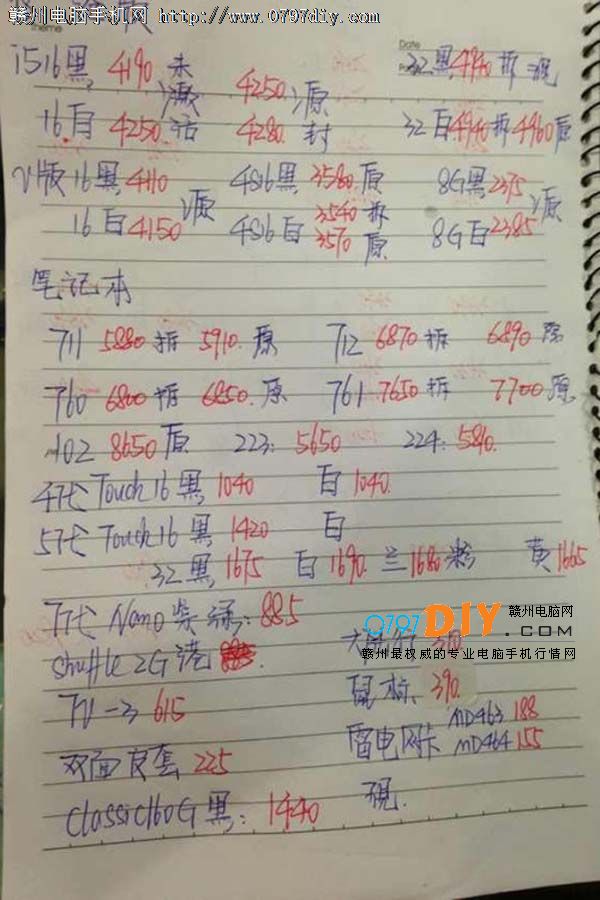 赣州电脑手机网 http://www.0797diy.com
Date
i516黑 4190 未激活 4250 原封 32黑 4940 拆
16白 4250 4280 32白 4940 拆 4960 原
V版 16黑 4110 原 4S16黑 3580 原 8G黑 2375 原
16白 4150 4S16白 3540 拆 3570 原 8G白 2385
笔记本
711 5880 拆 5910 原 712 6870 拆 6890 原
760 6800 拆 6850 原 761 7650 拆 7700 原
102 8650 原 223: 5650 224: 5840
4代 Touch 16 黑 1040 白 1040
5代 Touch 16 黑 1420 白
32 黑 1675 白 1690 兰 1680 粉 黄 1665
7代 Nano 紫 绿: 885
0797DIY 赣州电脑网
.COM
赣州最权威的专业电脑手机行情网
shuffle 2G 港
鼠标 390
TV-3 615
雷电网卡 MD463 188
MD464 155
双面皮套 225
classic160G 黑: 1440